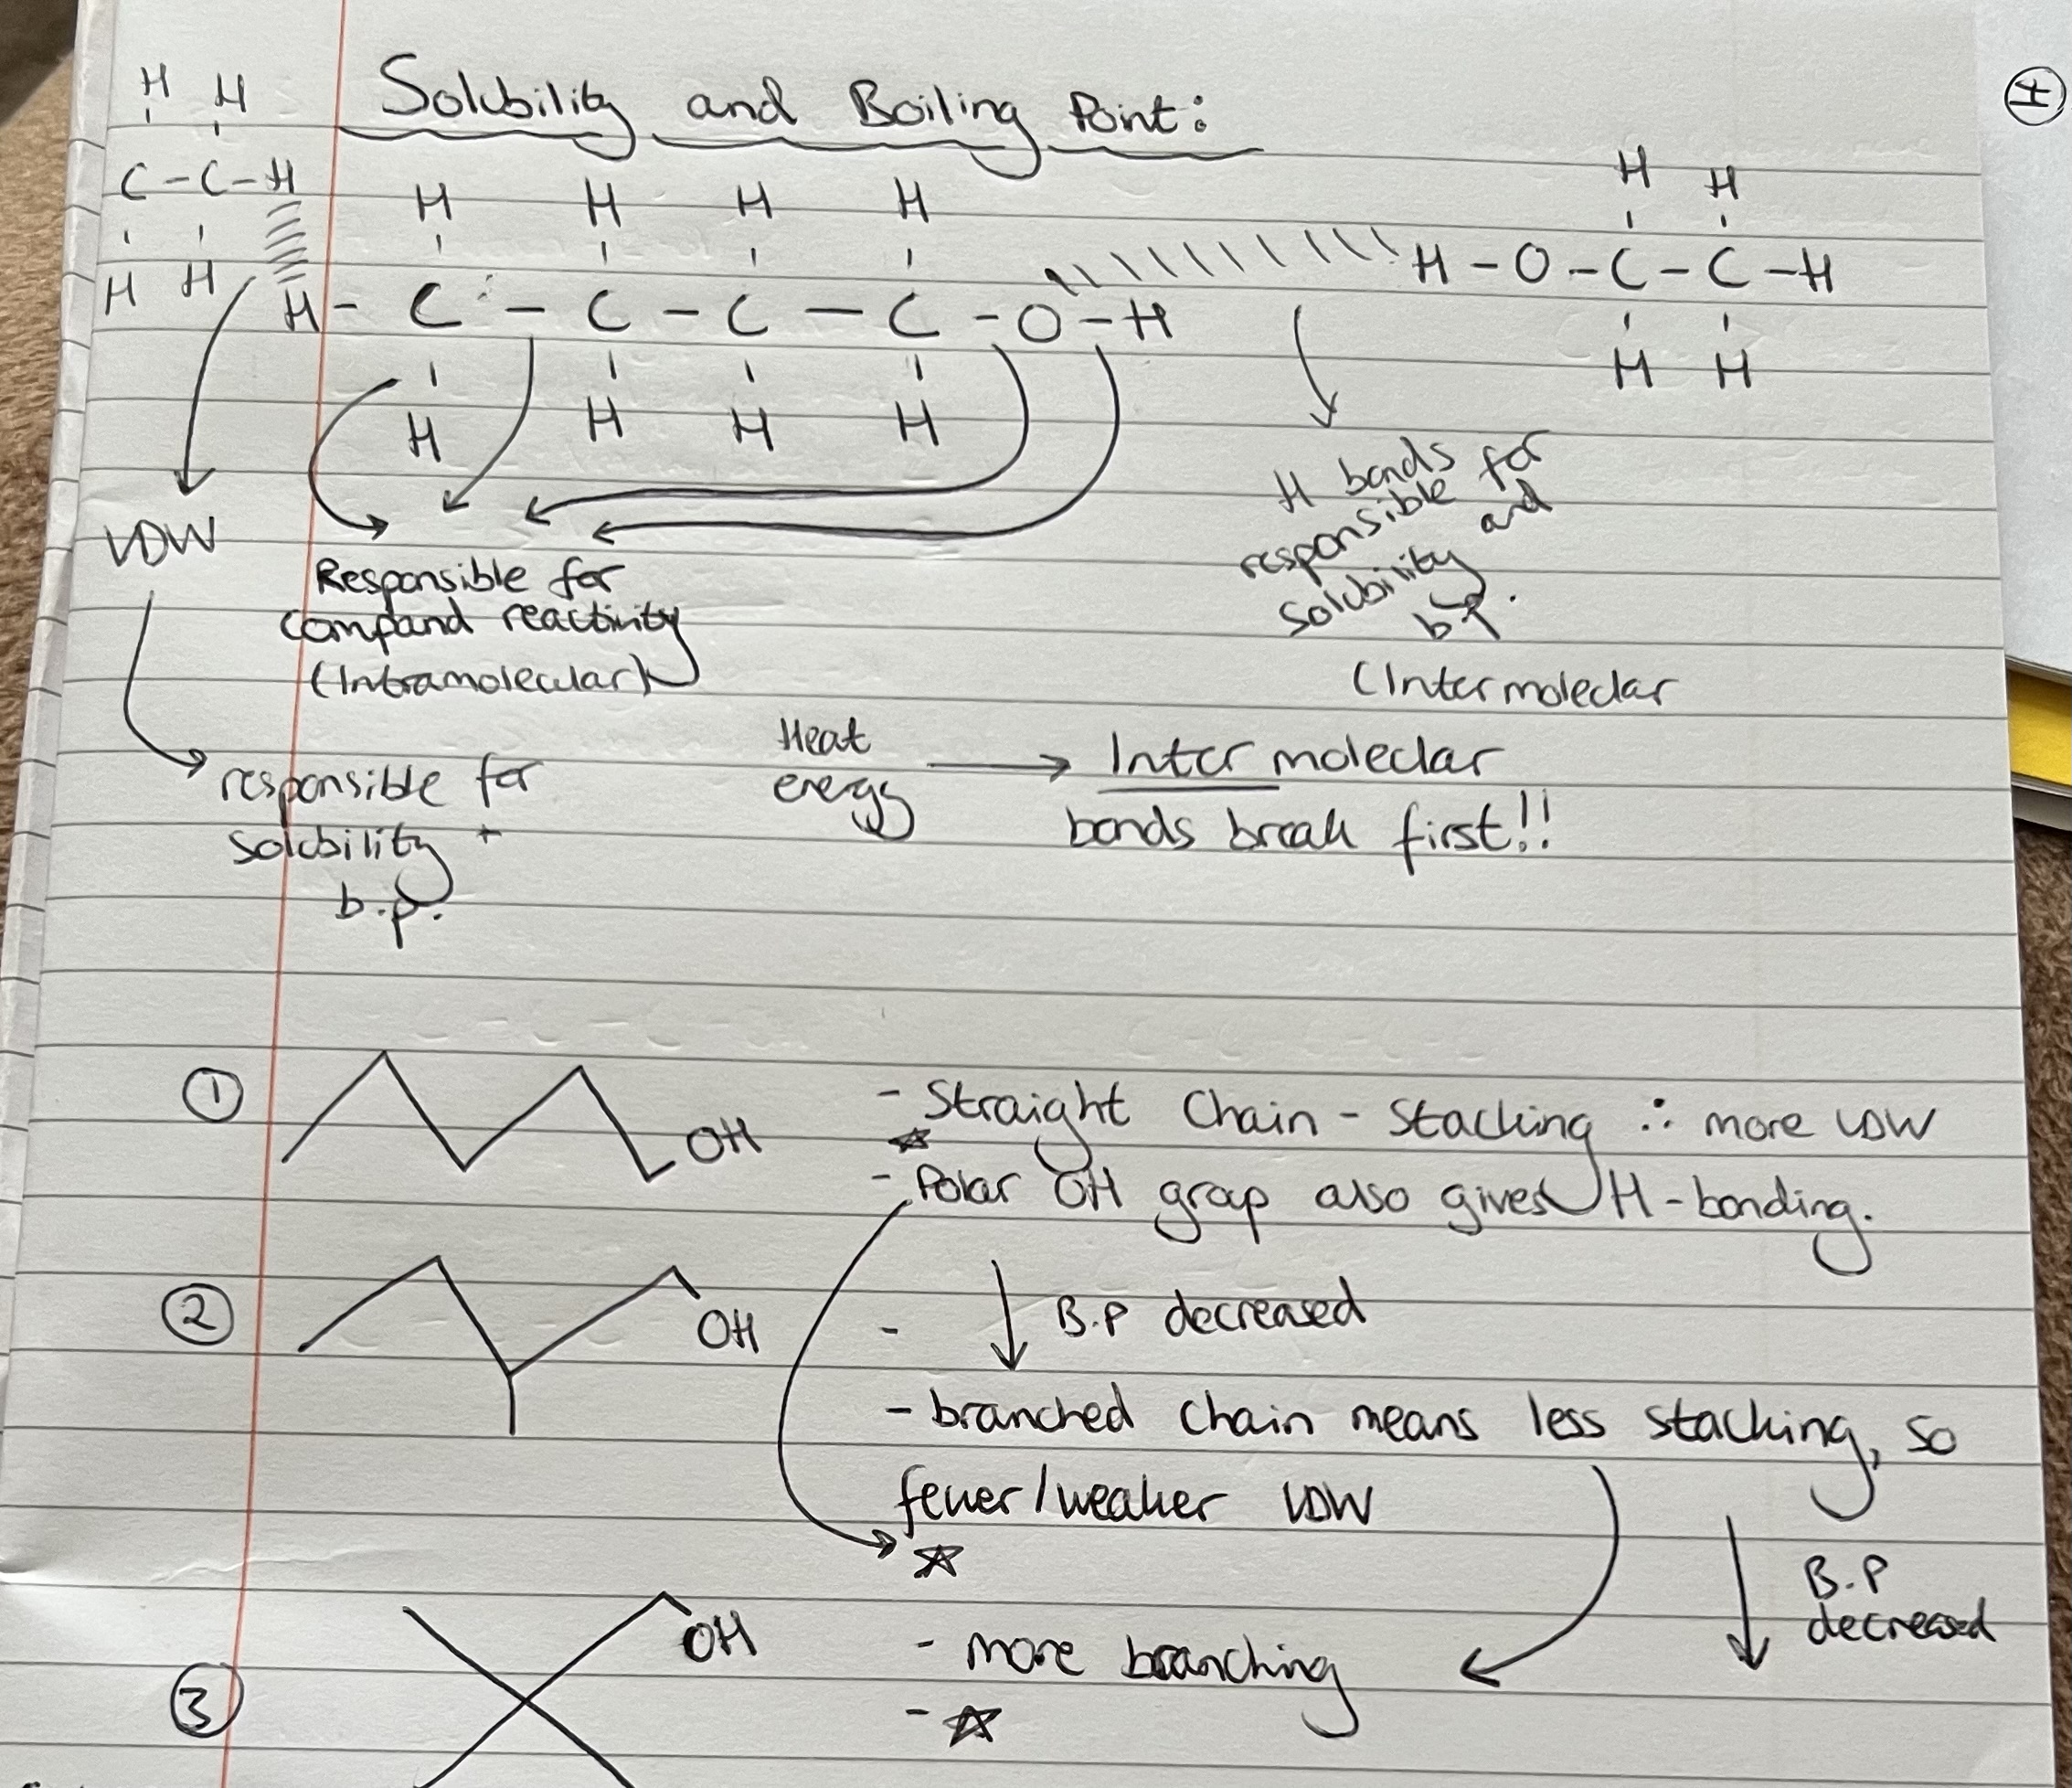 Solubility and Boiling Point:
H H
C - C - H
H H
H H H H
H - C - C - C - C - O - H
H H H H
H H
H - O - C - C - H
H H
VDW
Responsible for
compound reactivity
(Intramolecular)
H bonds for
responsible and
solubility
b.p.
(Intermoleclar
responsible for
solubility +
b.p.
Heat
energy → Inter moleclar
bonds break first!!
① OH
- Straight Chain - Stacking ∴ more VDW
☆
- Polar OH group also gives H-bonding.
② OH
- ↓ B.P decreased
- branched chain means less stacking, so
fewer/weaker VDW
☆
B.P
decreased
③ OH
- more branching
- ☆